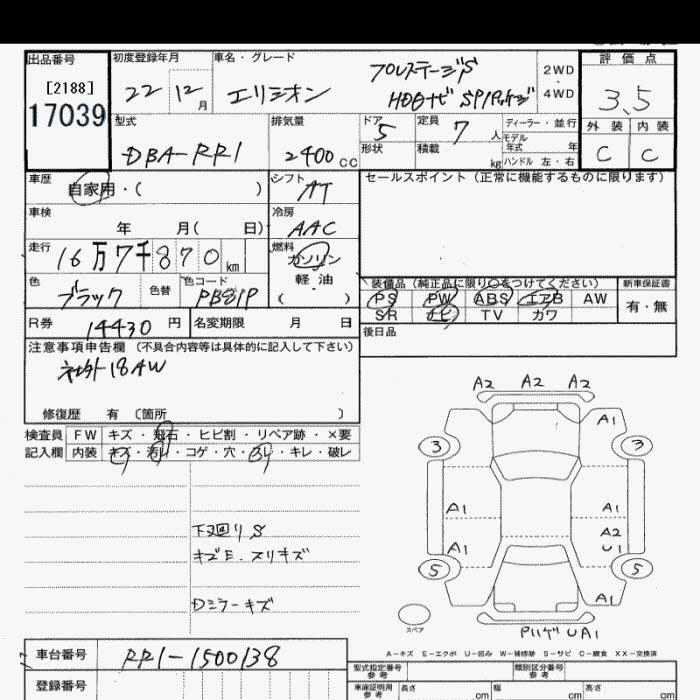 出品番号 初度登録年月 車名・グレード 評価点
[2188] 22 12月 エリシオン プロステージS 2WD・4WD 3.5
17039 HDDナビ SPパッケージ 外装 内装
型式 排気量 ドア 5 定員 7人 ディーラー・並行 C C
DBA-RR1 2400cc 形状 積載 kg モデル年式 年
ハンドル 左・右
車歴 自家用・( ) シフト AT セールスポイント (正常に機能するものに限ります)
車検 年 月( 日) 冷房 AAC
走行 16万7千870km 燃料 ガソリン
軽・油
( )
色 ブラック 色替 色コード PB81P
装備品(純正品に限り○をつけてください) 新車保証書
PS PW ABS エアB AW 有・無
SR ナビ TV カワ
R券 14430円 名変期限 月 日 後日品
注意事項申告欄 (不具合内容等は具体的に記入して下さい)
社外18AW
修復歴 有 〔箇所 〕
検査員 FW キズ・飛石・ヒビ割・リペア跡・×要
記入欄 内装 キズ・汚レ・コゲ・穴・スレ・キレ・破レ
下廻りS
キズE.スリキズ
Dミラーキズ
A2 A2 A2
A1
3 3
A1 A1
A2
A1 U1
5 5
A1
スペア
PリゲUA1
A-キズ E-エクボ U-凹み W-補修跡 S-サビ C-腐食 XX-交換済
車台番号 RR1-1500138
登録番号
型式指定番号 参考 類別区分番号 参考
車庫証明用 参考 長さ cm 幅 cm 高さ cm